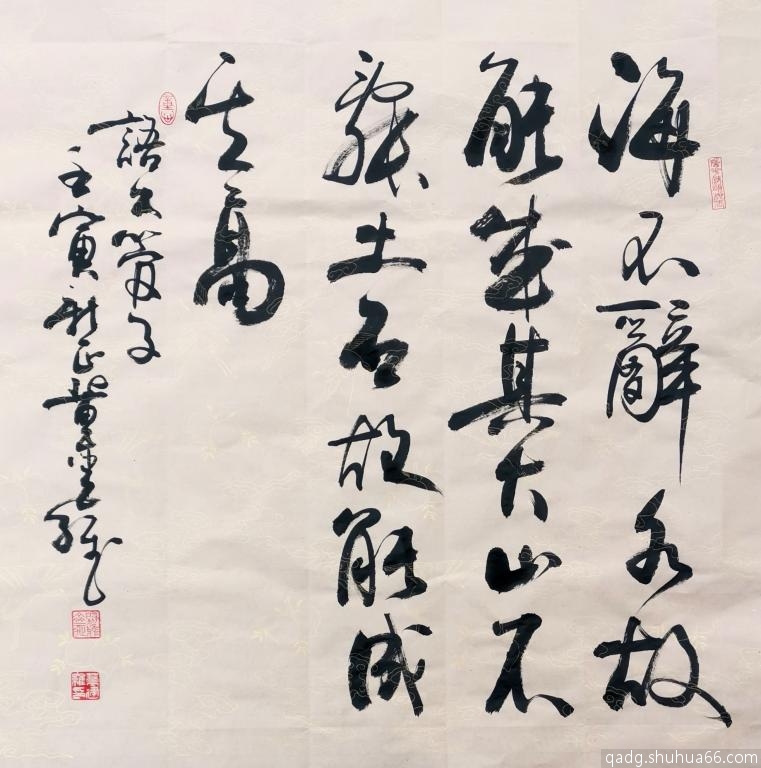 海不辭水故
能成其大山不
辭土石故能成
其高
語出管子
壬寅新正黃
qadg.shuhua66.com